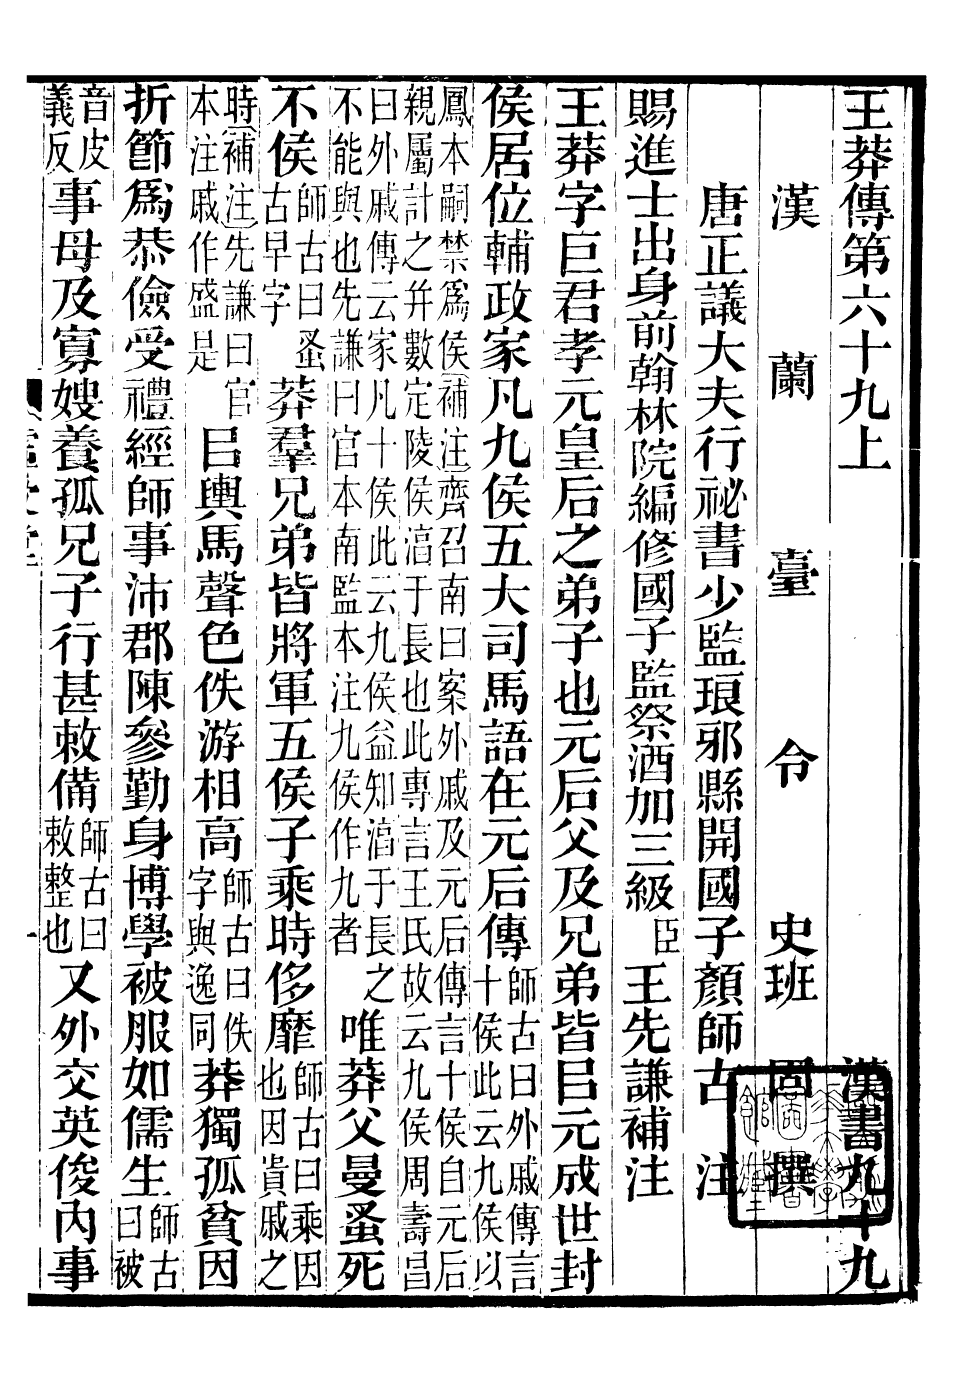 王莽傳第六十九上　漢書九十九
漢蘭臺令史班固撰
唐正議大夫行祕書少監琅邪縣開國子顏師古注
賜進士出身前翰林院編修國子監祭酒加三級臣王先謙補注
王莽字巨君孝元皇后之弟子也元后父及兄弟皆㠯元成世封
侯居位輔政家凡九侯五大司馬語在元后傳師古曰外戚傳言十侯此云九侯以
鳳本嗣禁爲侯〔補注〕齊召南曰案外戚及元后傳言十侯自元后親屬計之幷數定陵侯湻于長也此專言王氏故云九侯周壽昌
曰外戚傳云家凡十侯此云九侯益知湻于長之不能與也先謙曰官本南監本注九侯作九者唯莽父曼蚤死
不侯師古曰蚤古早字莽羣兄弟皆將軍五侯子乘時侈靡師古曰乘因也因貴戚之
時〔補注〕先謙曰官本注戚作盛是㠯輿馬聲色佚游相高師古曰佚字與逸同莽獨孤貧因
折節爲恭儉受禮經師事沛郡陳參勤身博學被服如儒生師古曰被
音皮義反事母及寡嫂養孤兄子行甚敕備師古曰敕整也又外交英俊內事